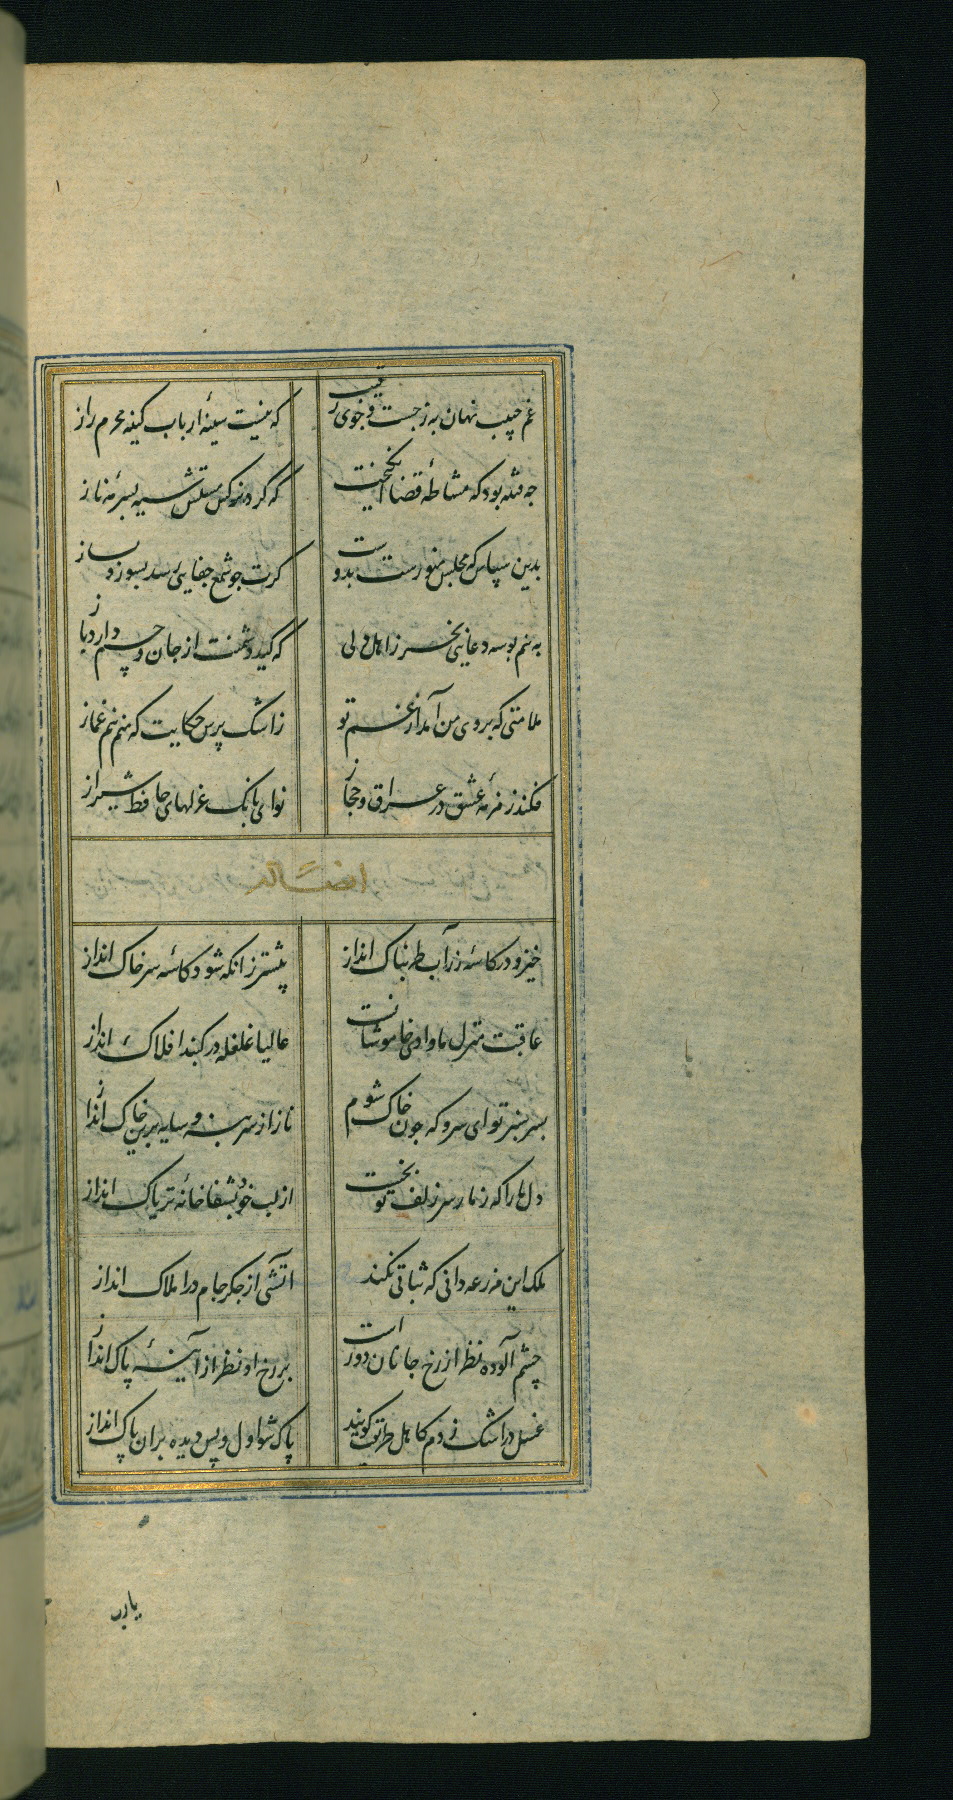 غم حبیب نهان به ز جست و جوی رقیب
که نیست سینهٔ ارباب کینه محرم راز
چه فتنه بود که مشاطهٔ قضا انگیخت
که کرد نرکس مستش سیه بسرمهٔ ناز
بدین سپاس که مجلس منورست بدوست
کرت چو شمع جفایی رسد بسوز و بساز
به نیم بوسه دعایی بخر ز اهل دلی
که کید دشمنت از جان و جسم دارد باز
ملامتی که بروی من آمد از غم تو
ز اشک پرس حکایت که من نیم غماز
فکند زمزمهٔ عشق در عراق و حجاز
نوای بانک غزلهای حافظ شیراز
ایضاً له
خیز و در کاسهٔ زر آب طربناک انداز
پیشتر زانکه شود کاسهٔ سر خاک انداز
عاقبت منزل ما وادی خاموشانست
حالیا غلغله در کنبد افلاک انداز
بسر سبز تو ای سرو که چون خاک شوم
ناز از سر بنه و سایه برین خاک انداز
دل ما را که ز مار سر زلف تو بخست
از لب خود بشفاخانهٔ تریاک انداز
ملک این مزرعه دانی که ثباتی نکند
آتشی از جکر جام در املاک انداز
چشم آلوده نظر از رخ جانان دورست
بر رخ او نظر از آینهٔ پاک انداز
غسل در اشک زدم کاهل طریقت کویند
پاک شو اول و پس دیده بران پاک انداز
یارب